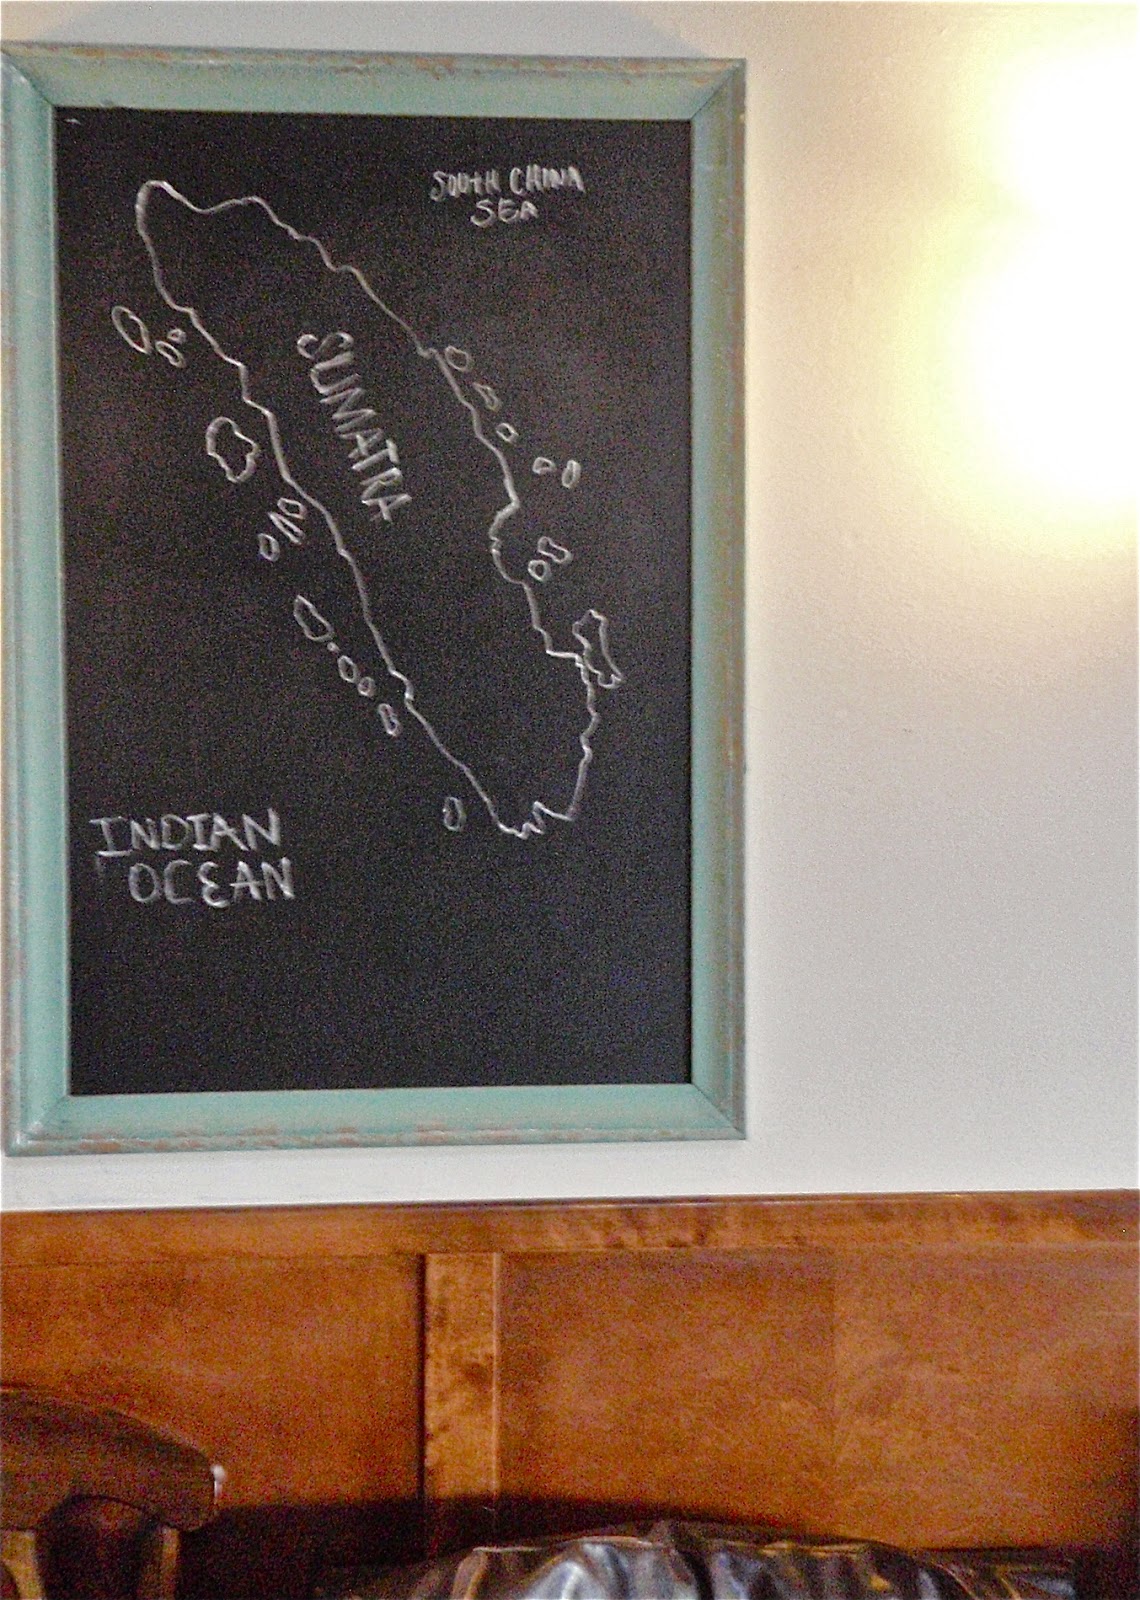 SOUTH CHINA
SEA
SUMATRA
INDIAN
OCEAN